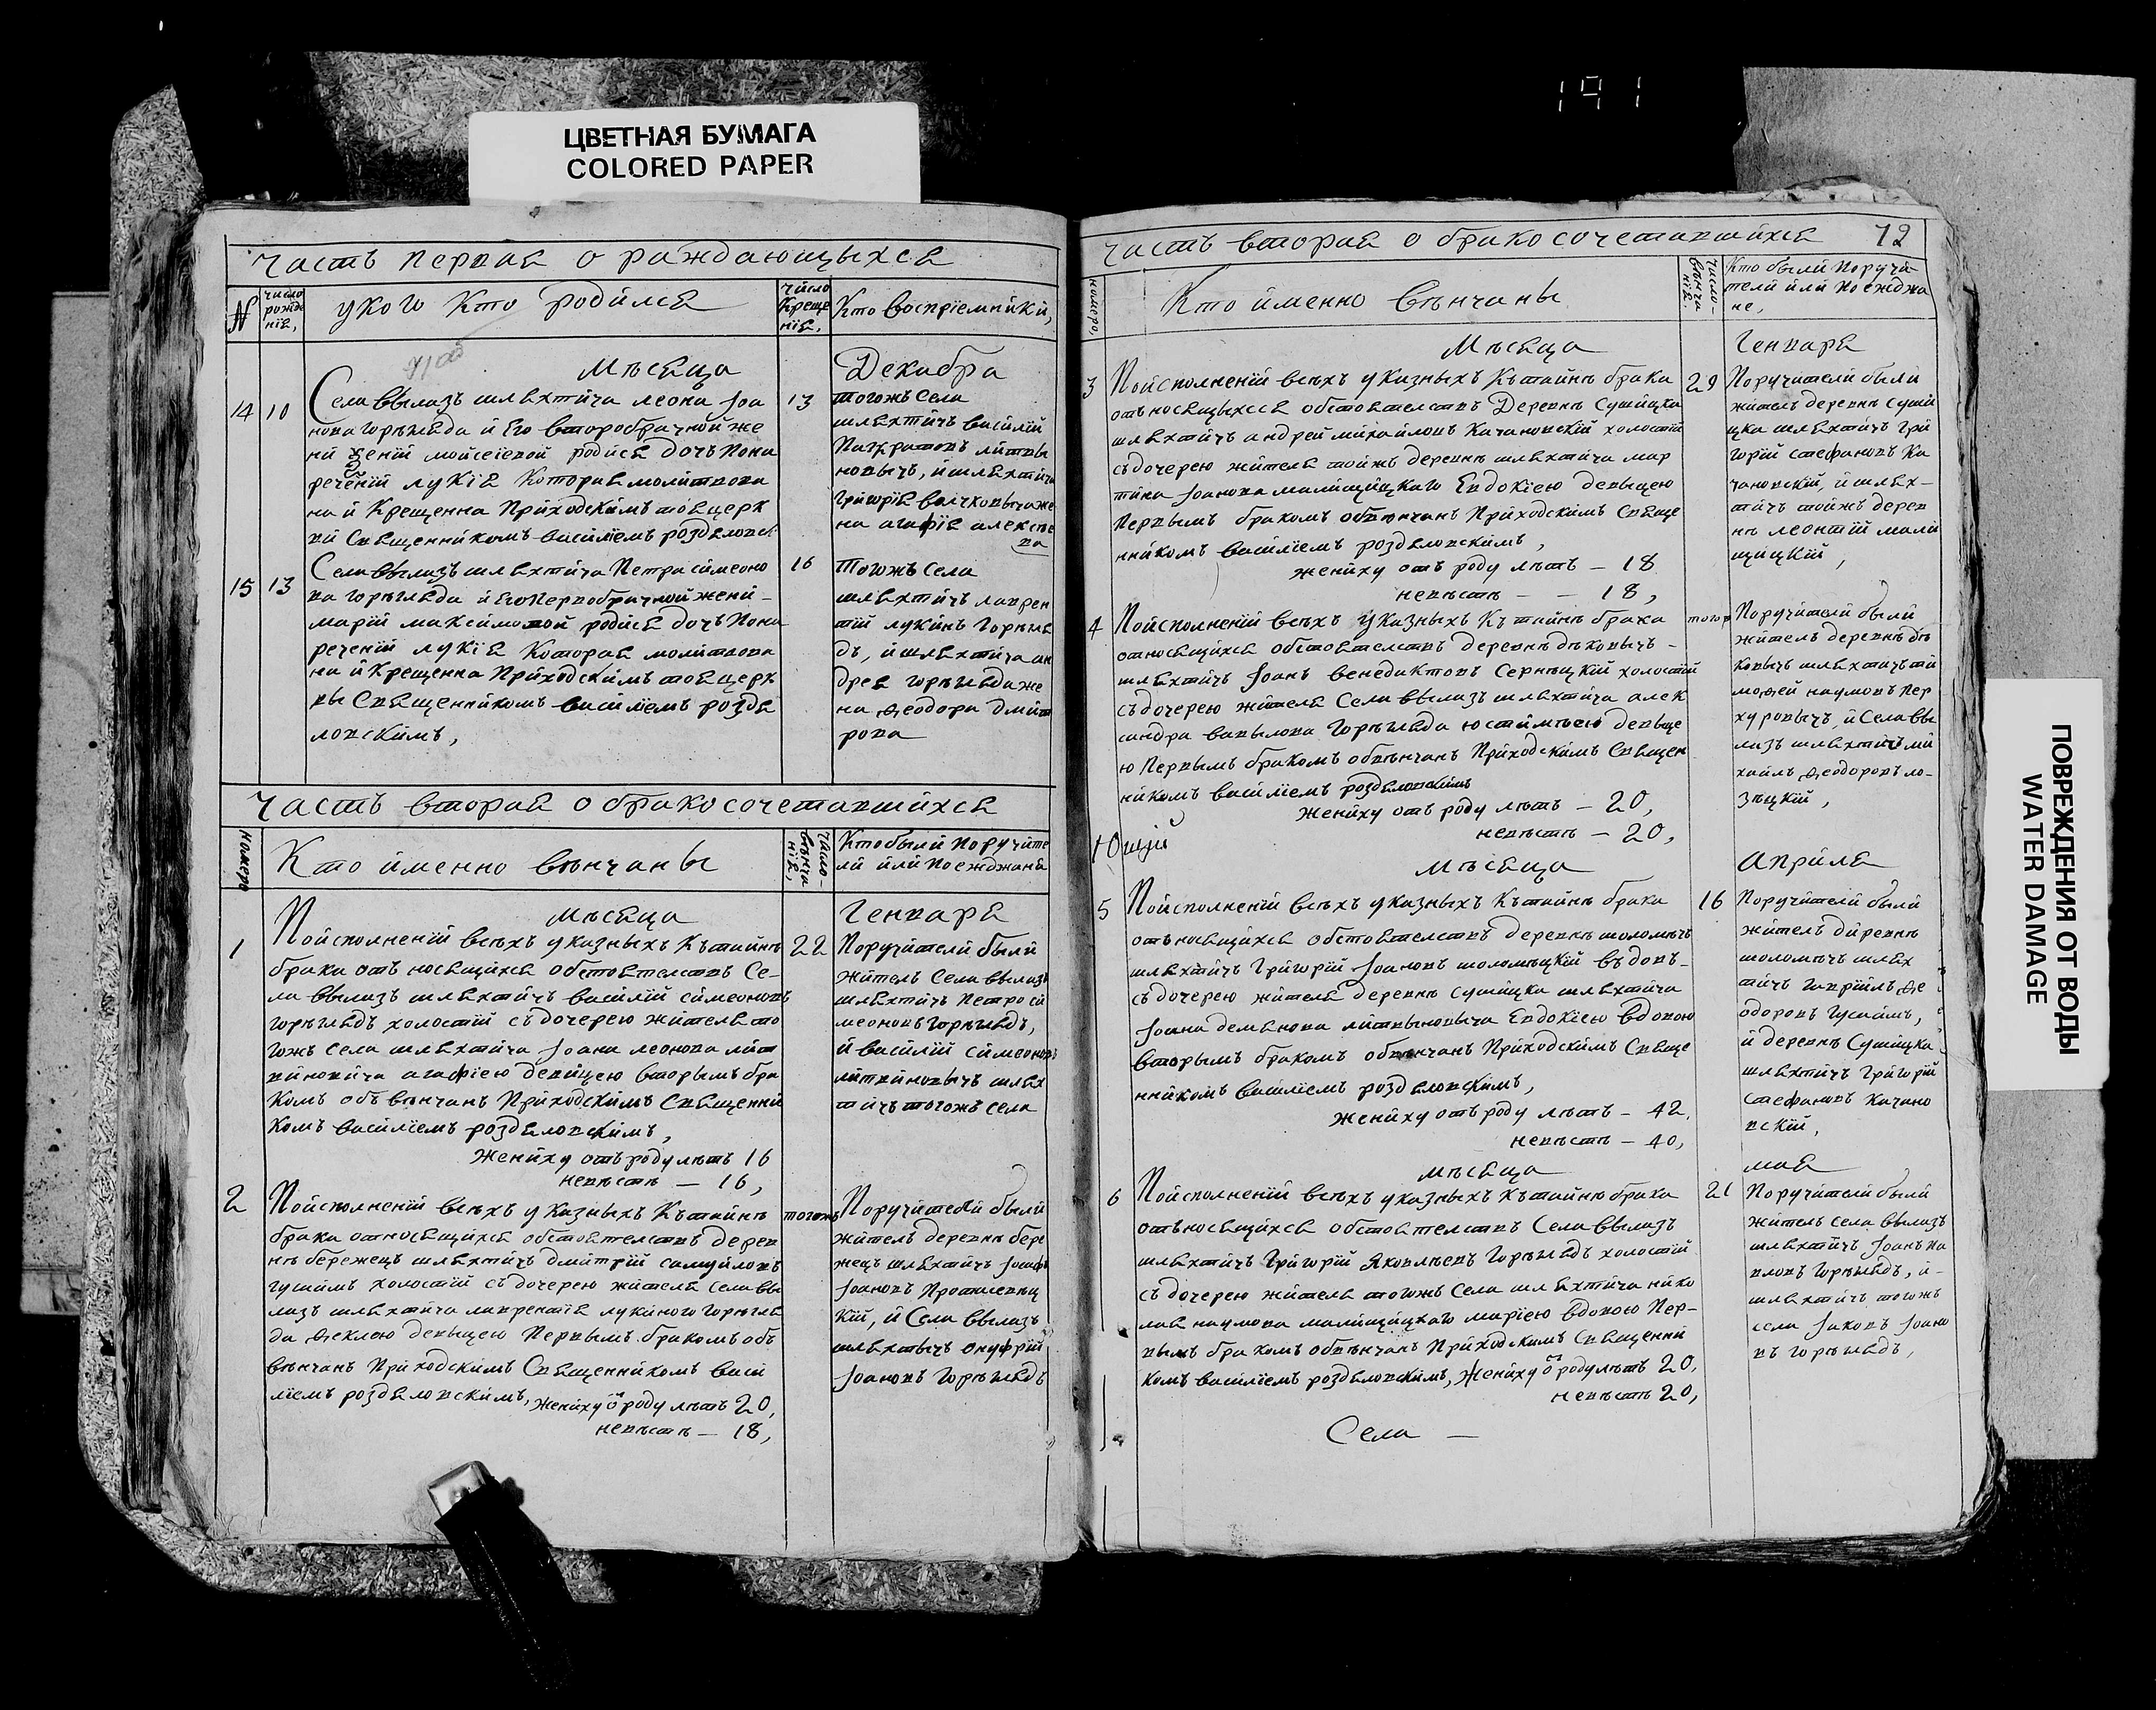 191
ЦВЕТНАЯ БУМАГА
COLORED PAPER
ПОВРЕЖДЕНИЯ ОТ ВОДЫ
WATER DAMAGE
Часть первая о раждающыхся
N
число рожде нія,
у кого кто родился
число креще нія,
Кто воспріемники,
Мѣсяца
Декабра
14
10
Села Вылазъ шляхтича леона Іоа
нова Горъгляда и Его второбрачной же
ни Ксеніи мойсеіевой родися дочь пона
реченіи лукія которая молитвова
на и крещенна приходскимъ тоя церк
ви Священникомъ василіемъ роздяловск
13
тогожъ села
шляхтичъ василій
Панкратовъ литвы
новычъ, и шляхтича
григорія волчковыча же
на агафія алексѣе
ва
15
13
Села Вылазъ шляхтича Петра симеоно
ва горъгляда и Его первобрачной жени
маріи максимовой родися дочь пона
реченіи лукія которая молитвова
на и крещенна приходскимъ тоя церк
вы Священникомъ василіемъ роздя
ловскимъ,
16
тогожъ села
шляхтичъ лаврен
тій лукинъ горъгля
дъ, и шляхтича ан
дрея горъгляда же
на Ѳеодора дмит
рова
Часть вторая о бракосочетавшихся
номеръ
Кто именно вѣнчаны
число вѣнча нія,
Кто были поручите
ли или поежджаня
мѣсяца
Генваря
1
По исполненіи всѣхъ указныхъ къ тайнѣ
брака отъ носящихся обстоятелствъ Се-
ла Вылазъ шляхтичъ василій симеоновъ
горъглядъ холостій съ дочерею жителя то
гожъ села шляхтича Іоана леонова лит
виновича агафіею девицею вторымъ бра
комъ объ вѣнчанъ приходскимъ Священни
комъ василіемъ роздяловскимъ,
жениху отъ роду лѣтъ 16
невѣстѣ — 16,
22
Поручители были
житель села Вылазъ
шляхтичъ Петро си
меоновъ горъглядъ,
и василій симеоновъ
литвиновычъ шлях
тичъ тогожъ села
2
По исполненіи всѣхъ указныхъ къ тайнѣ
брака относящихся обстоятелствъ дерев
нѣ бережецъ шляхтичъ дмитрій самуйловъ
гушимъ холостій съ дочерею жителя села Вы
лазъ шляхтича лаврентія лукиного горъгля
да Ѳеклою девыцею первымъ бракомъ объ
вѣнчанъ приходскимъ Священникомъ васи
ліемъ роздяловскимъ, жениху ѿ роду лѣтъ 20,
невѣстѣ — 18,
тогожъ
Поручители были
житель деревнѣ бере
жецъ шляхтичъ Іосифъ
Іоановъ Протасевиц
кій, и села Вылазъ
шляхтычъ Онуфрій
Іоановъ горъглядъ
часть вторая о бракосочетавшихся
72
номеръ,
Кто именно вѣнчаны
число вѣнча нія.
Кто были поручи
тели или поежджа
не,
Мѣсяца
Генваря
3
По исполненіи всѣхъ указныхъ къ тайнѣ брака
отъ носящыхся обстоятелствъ Деревнѣ Сушицка
шляхтичъ андрей михайловъ Качановскій холостій
съ дочерею жителя тойжъ деревнѣ шляхтича мар
тина Іоанова малищицкаго Евдокіею девыцею
первымъ бракомъ обвѣнчанъ приходскимъ Свяще
нникомъ василіемъ роздяловскимъ,
жениху отъ роду лѣтъ — 18
невѣстѣ — — 18,
29
Поручители были
житель деревнѣ суши
цка шляхтичъ гри
горій стефановъ ка
чановскій, и шлях-
тичъ тойжъ дерев
нѣ леонтій мали
щицкій,
4
По исполненіи всѣхъ указныхъ къ тайнѣ брака
относящихся обстоятелствъ деревнѣ дѣковычъ
шляхтичъ Іоанъ венедиктовъ Серницкій холостій
съ дочерею жителя села Вылазъ шляхтича алек
сандра вавылова горъгляда юстимѣею девыце
ю первымъ бракомъ обвѣнчанъ приходскимъ Священ
никомъ василіемъ роздяловскимъ
жениху отъ роду лѣтъ — 20,
невѣстѣ — 20,
тогож
Поручители были
житель деревнѣ дѣ
ковычъ шляхтичъ ти
моѳей наумовъ пер
хуровычъ, и села Вы
лазъ шляхтичъ ми
хаилъ Ѳеодоровъ ло-
зѣцкій,
мѣсяца
априля
5
По исполненіи всѣхъ указныхъ къ тайнѣ брака
отъ носящихся обстоятелствъ деревнѣ шоломѣчъ
шляхтичъ григорій Іоановъ шоломѣцкій въдовъ-
съ дочерею жителя деревнѣ сушицка шляхтича
Іоана демянова литвыновыча Евдокіею вдовою
вторымъ бракомъ обвѣнчанъ приходскимъ Свяще
нникомъ василіемъ роздяловскимъ,
жениху отъ роду лѣтъ — 42,
невѣстѣ — 40,
16
Поручители были
житель диревнѣ
шоломѣчъ шлях
тичъ гавріилъ Ѳе
одоровъ гусаимъ,
и деревнѣ Сушицка
шляхтичъ григорій
стефановъ качано
вскій,
мѣсяца
мая
6
По исполненіи всѣхъ указныхъ къ тайнѣ брака
отъносящихся обстоятелствъ села Вылазъ
шляхтичъ григорій Яковлѣевъ горъглядъ холостій
съ дочерею жителя тогожъ села шляхтича нико
лая наумова малищицкаго маріею вдовою пер-
вымъ бракомъ обвѣнчанъ приходскимъ Священни
комъ василіемъ роздяловскимъ, жениху ѿ роду лѣтъ 20,
невѣстѣ 20,
21
Поручители были
житель села Вылазъ
шляхтичъ Іоанъ па
вловъ горъглядъ, и-
шляхтичъ тогожъ
села Іаковъ Іоано
въ горъглядъ,
Села —